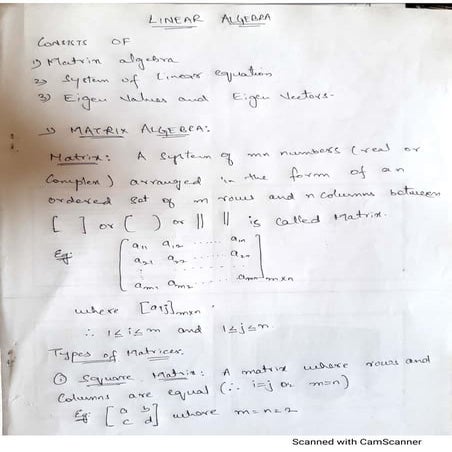 LINEAR ALGEBRA
CONSISTS OF
1) Matrix algebra
2) System of Linear equation
3) Eigen Values and Eigen Vectors.
1) MATRIX ALGEBRA:
Matrix: A system of mn numbers (real or
Complex) arranged in the form of an
ordered set of m rows and n columns between
[ ] or ( ) or || || is called Matrix.
Eg: [ a11 a12 ...... a1n
a21 a22 ...... a2n
:
am1 am2 ...... amn ] m×n
where [aij]m×n
∴ 1≤i≤m and 1≤j≤n.
Types of Matrices.
① Square Matrix: A matrix where rows and
Columns are equal (∴ i=j or m=n)
Eg: [ a b
c d ] where m=n=2
Scanned with CamScanner